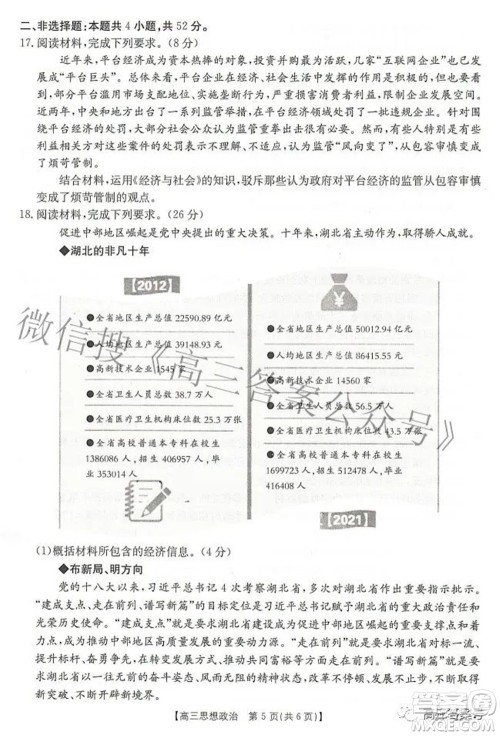 二、非选择题：本题共 4 小题，共 52 分。
17. 阅读材料，完成下列要求。（8 分）
近年来，平台经济成为资本热捧的对象，几家“互联网企业”也成长为
“平台巨头”。我国拥有全球规模最大、最为活跃的平台经济，但同时，由平台
经营者滥用市场支配地位等行为引发的竞争失序、消费者利益受损、中小
企业发展空间受限、安全风险高企等问题也严重影响市场健康发展。
近两年，中央和地方出台了一系列监管举措，并处罚了一批违规企业。针对
围绕平台经济的处罚，大部分社会公众认为监管要拿出力度，但也有一些
利益相关者对这些案件的处罚不理解，认为监管“风向变了”，从包容审慎变成
了烦苛管制。
结合材料，运用《经济与社会》的知识，驳斥那些认为政府对平台经济的监管从包容审
慎变成了烦苛管制的观点。
18. 阅读材料，完成下列要求。（26 分）
促进中部地区崛起是党中央提出的重大决策。十年来，湖北省取得了骄人成就。
◆湖北的非凡十年
【2012】
●全省地区生产总值 22590.89 亿元
●人均地区生产总值 39148.93 元
●高新技术企业 1545 家
●全省卫生人员总数 38.4 万人
●全省医疗卫生机构床位数 25.3 万张
●全省高校普通本专科在校生
1386086 人，招生 406957 人，毕
业 353014 人
¥
●全省地区生产总值 50012.94 亿元
●人均地区生产总值 86415.55 元
●高新技术企业 14560 家
●全省卫生人员总数 56.5 万人
●全省医疗卫生机构床位数 43.5 万张
●全省高校普通本专科在校生
1699723 人，招生 512478 人，毕
业 408416 人
【2021】
微信搜《高三答案公众号》
（1）概括材料所包含的经济信息。（4 分）
◆布新局、明方向
党的十八大以来，习近平总书记 4 次考察湖北省，多次对湖北省工作作出重要指示。
“建成支点、走在前列、谱写新篇”的目标定位是习近平总书记赋予湖北省的重大政治责任和
光荣历史使命。“建成支点”，就是要在促进中部地区崛起中发挥战略支点作用；“走在前
列”，就是要在推动中部地区高质量发展的重大实践中走在前列；“谱写新篇”，就是要牢记
殷殷嘱托，奋勇争先，在推动共同富裕等方面谱写新篇。
【高三思想政治　第 5 页（共 6 页）】